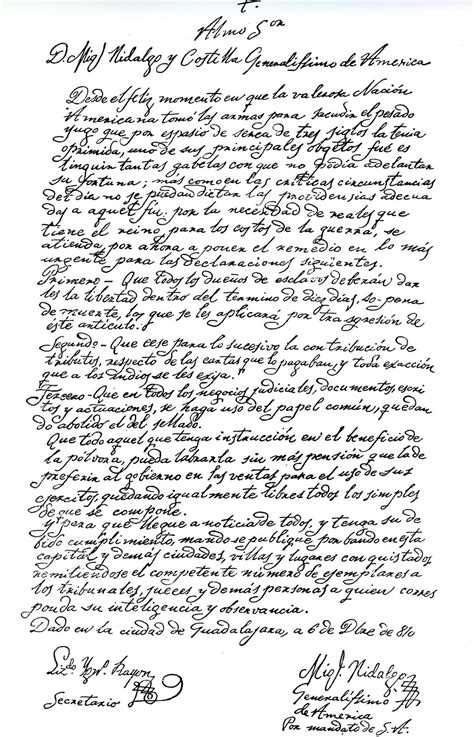 Almo Sor
D. Migl Hidalgo y Costilla Generalissimo de America
Desde el feliz momento en que la valerosa Nación
Americana tomó las armas para sacudir el pesado
yugo que por espasio de serca de tres siglos la tenia
oprimida, uno de sus principales obgetos fué es
tinguir tantas gabelas con que no podia adelantar
su fortuna; mas como en las críticas circunstancias
del dia no se puedan dictar las providensias adecua
das a aquel fin, por la necesidad de reales que
tiene el reino para los costos de la guerra, se
atienda por ahora a poner el remedio en lo más
urgente para las declaraciones siguientes.
Primero- Que todos los dueños de esclavos deberán dar
les la libertad dentro del término de diez días, so-pena
de muerte, la que se les aplicará por trasgresión de
éste artículo.
Segundo- Que cese para lo sucesivo la contribución de
tributos, respecto de las castas que lo pagaban, y toda exacción
que a los indios se les exija.
Tercero- Que en todos los negocios judiciales, documentos, escri
tos y actuaciones, se haga uso del papel común, quedan
do abolido el del sellado.
Que todo aquel que tenga instrucción en el beneficio de
la pólvora, pueda labrarla sin más pensión que la de
preferir al gobierno en las ventas para el uso de sus
ejercitos, quedando igualmente libres todos los simples
de que se compone.
Y para que llegue a noticia de todos, y tenga su de
bido cumplimiento, mando se publique por bando en esta
capital y demás ciudades, villas y lugares conquistados
remitiendose el competente número de ejemplares a
los tribunales, jueces y demás personas a quien corres
ponda su inteligencia y observancia.
Dado en la ciudad de Guadalajara, a 6 de Dbre de 810
Lic.do Ygn. Rayon
Secretario
Migl. Hidalgo
Generalissimo
de America
Por mandato de S.A.